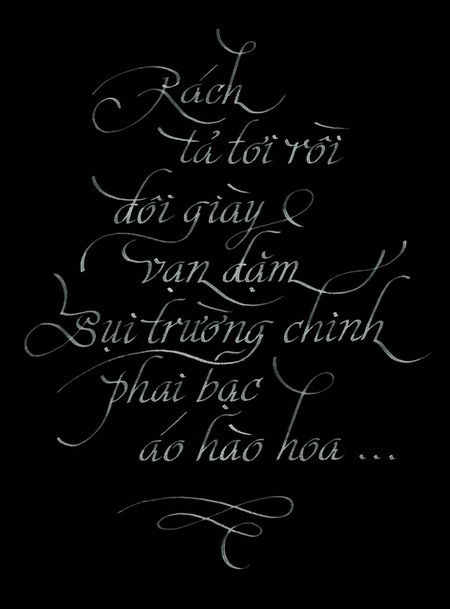 Rách
tả tơi rồi
đôi giày
vạn dặm
Bụi trường chinh
phai bạc
áo hào hoa ...